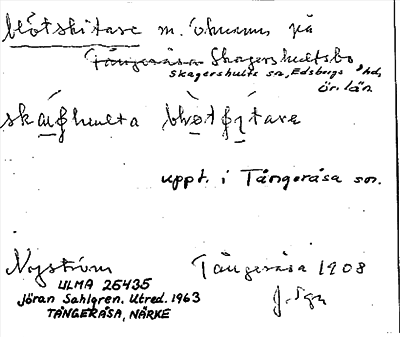 blötskitare m. öknamn på
Tångeråsa Skagershultsbo
Skagershults sn, Edsbergs hd,
ör. län
uppt. i Tångeråsa sn.
Nyström Tångeråsa 1908
ULMA 25435 J. Sgn
Jöran Sahlgren. Utred. 1963
TÅNGERÅSA, NÄRKE